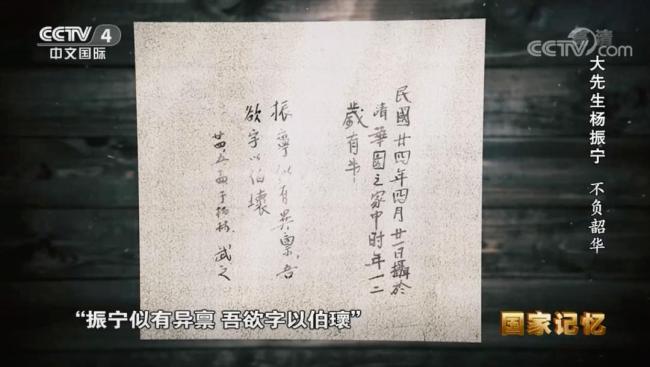 CCTV 4
中文国际
CCTV.com
高清
大先生杨振宁 不负韶华
民國廿四年四月廿一日攝於
清華園之家中时年一二
歲有半
振寧似有異稟、吾
欲字以伯瓌
廿四、五、 武之
“振宁似有异禀 吾欲字以伯瓌”
国家记忆